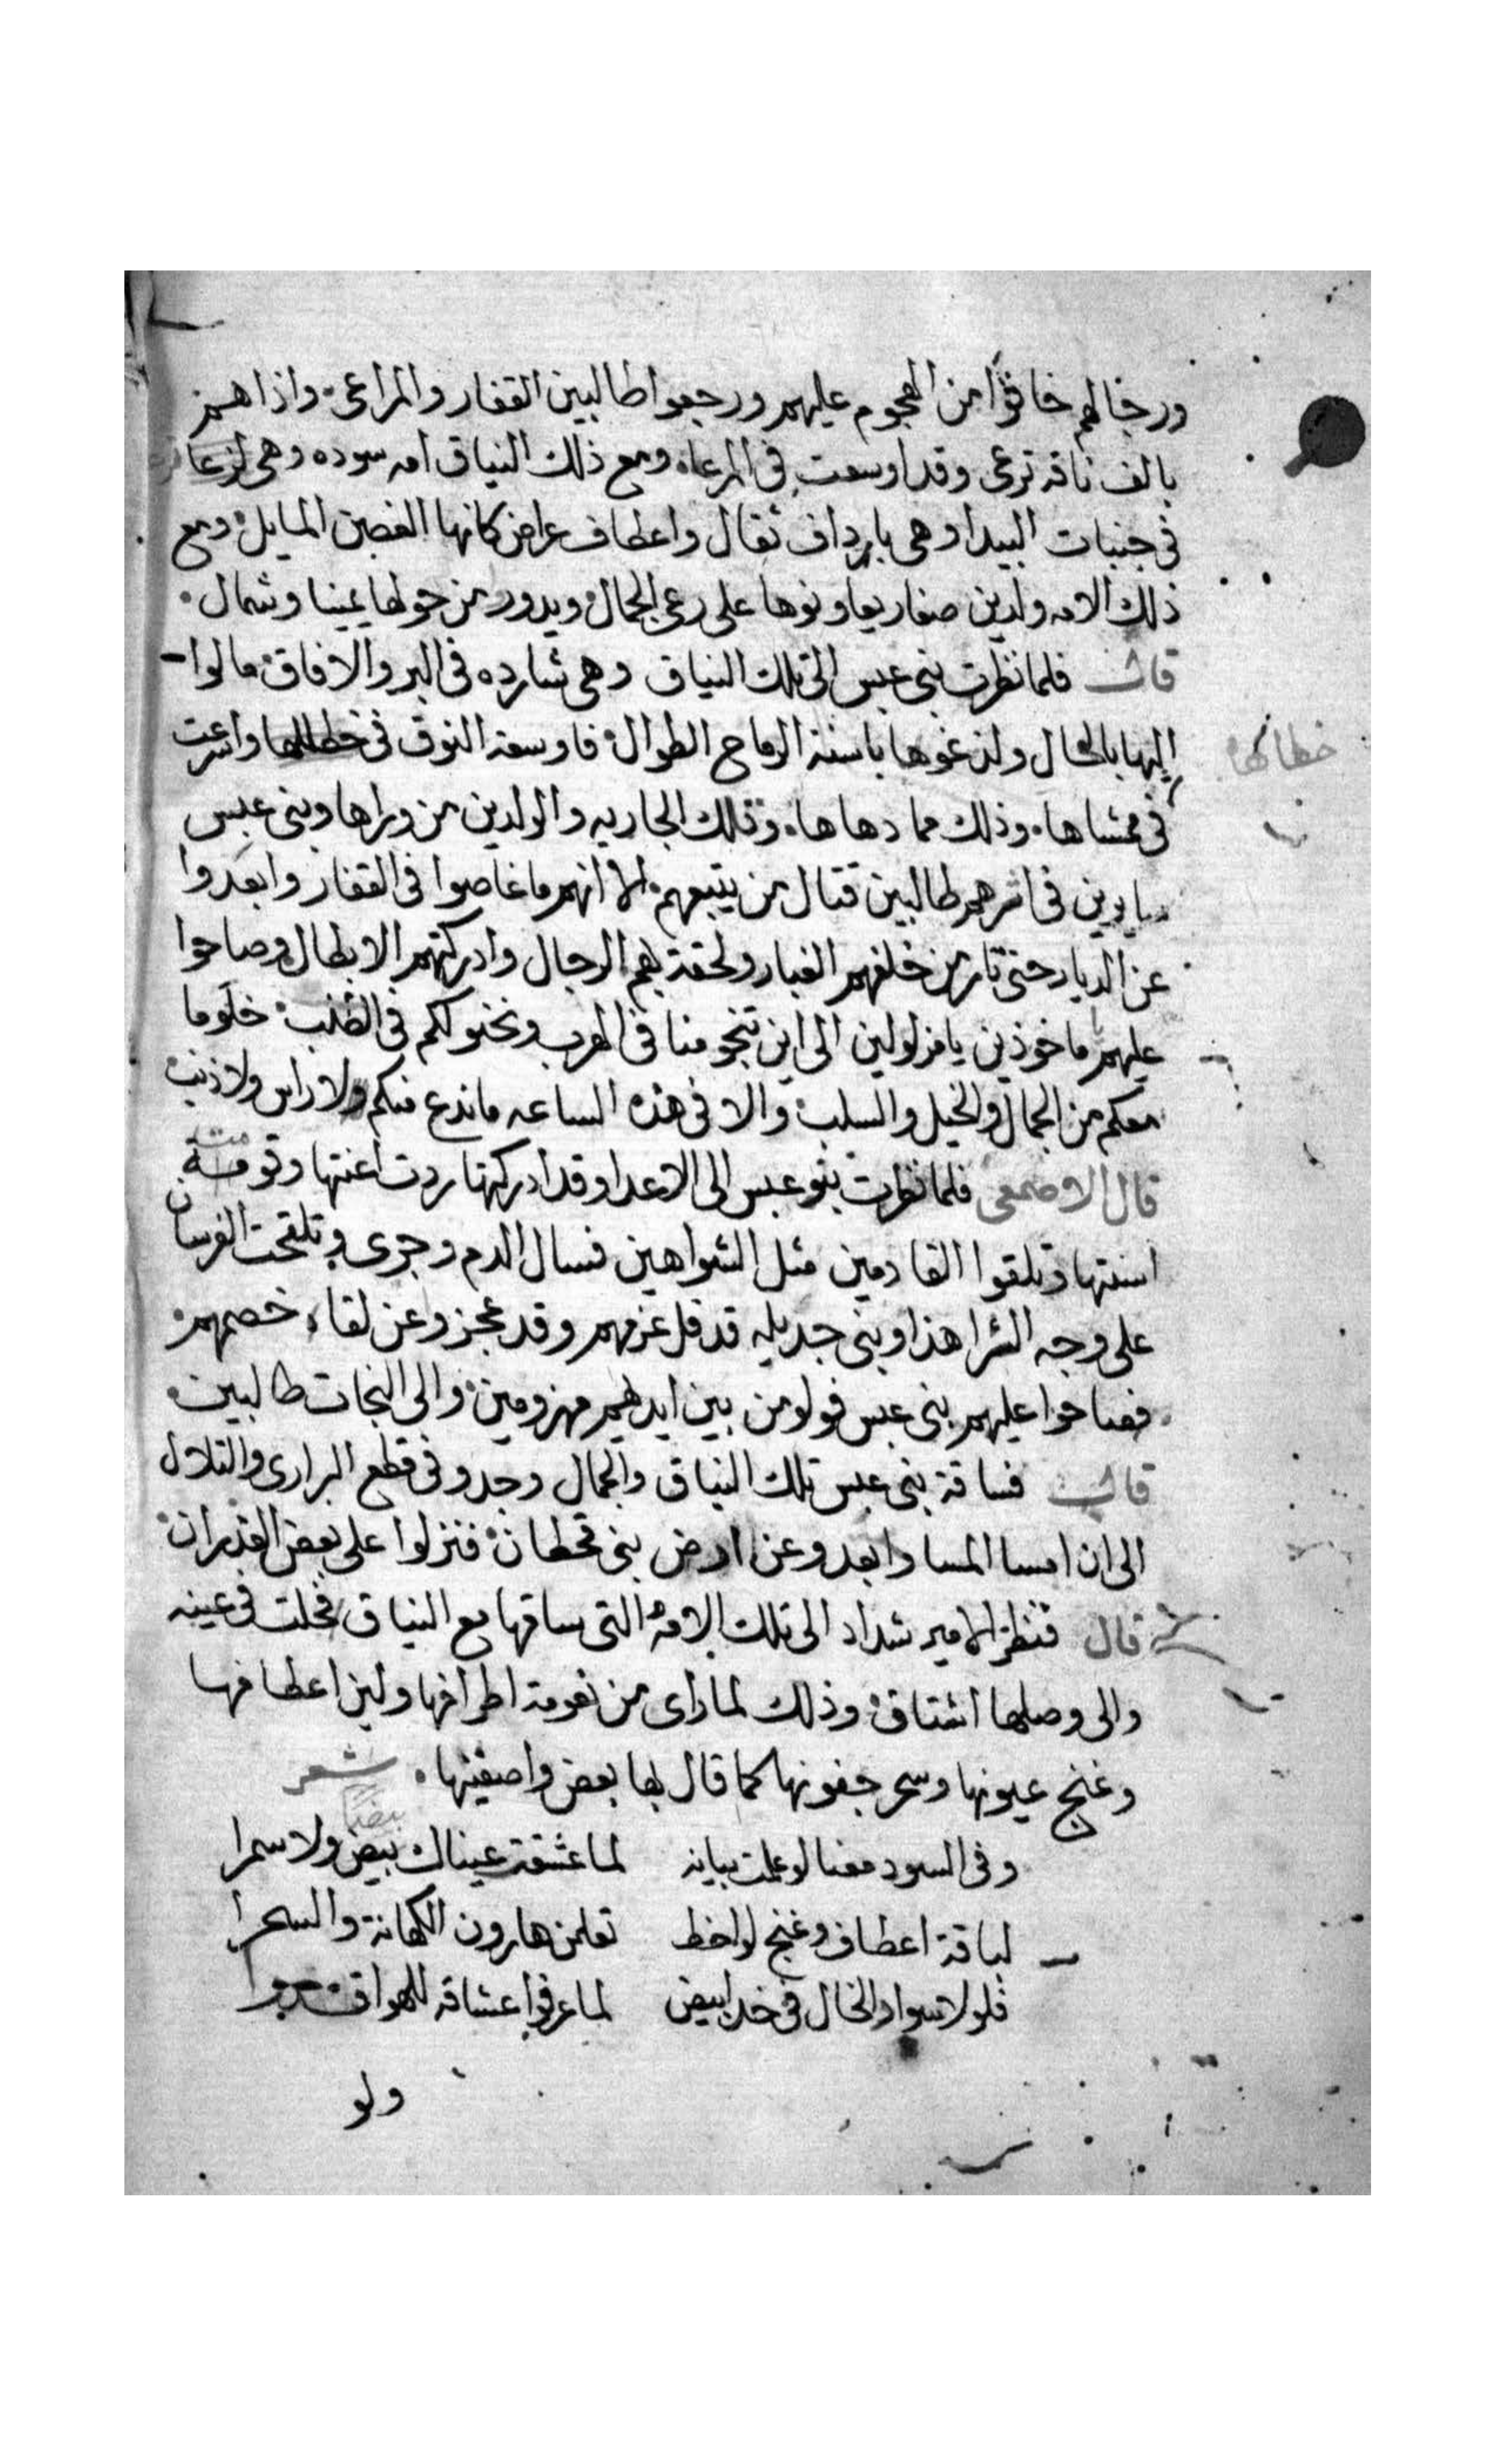 ورجالهم خافوا من الهجوم عليهم ورجعوا طالبين القفار والمراعى واذا هم
بالف ناقه ترعى وقد اوسعت فى المرعاه ومع ذلك النياق امه سوده وهى
فى جنبات البيدا وهى بارداف ثقال واعطاف عراض كانها الغصن المايل ومع
ذلك الامه ولدين صغار يعاونوها على رعى الجمال ويدور من حولها يمينا وشمال
قال فلما نظرت بنى عبس الى تلك النياق وهى شارده فى البر والافاق مالوا
اليها بالحال ولزغوها باسنة الرماح الطوال فاوسعة النوق فى خطالها واسرعت
خطالها
فى ممشاها وذلك مما دهاها وتلك الجاريه والولدين من وراها وبنى عبس
سايرين فى اثرهم طالبين قتال من يتبعهم الا انهم ما غاصوا فى القفار وابعدوا
عن الديار حتى ثار من خلفهم الغبار ولحقة بهم الرجال وادركتهم الابطال وصاحوا
عليهم ماخوذين يا مزلولين الى اين تنجو منا فى الهرب ونحنو لكم فى الطلب خلو ما
معكم من الجمال والخيل والسلب والا فى هذه الساعه ما ندع منكم ولا راس ولا ذنب
قال الاصمعى فلما نظرت بنو عبس الى الاعدا وقد ادركتها ردت اعنتها وقومة
اسنتها وتلقوا القادمين مثل الشواهين فسال الدم وجرى وتلقحت الفرسان
على وجه الثرا هذا وبنى جديله قد فل عزمهم وقد عجزو عن لقاء خصمهم
فصاحوا عليهم بنى عبس فولو من بين ايديهم مهزومين والى النجات طالبين
قال فساقة بنى عبس تلك النياق والجمال وجدو فى قطع البرارى والتلال
الى ان امسا المسا وابعدو عن ارض بنى قحطان فنزلوا على بعض الغدران
قال فنظر الامير شداد الى تلك الامه التى ساقها مع النياق فحلت فى عينه
والى وصلها اشتاق وذلك لما راى من نعومة اطرافها ولين اعطافها
وغنج عيونها وسحر جفونها كما قال بها بعض واصفينها شعر
وفى السود معنا لو علمت بيانه لما عشقة عيناك بيض ولا سمرا
بيضًا
لباقة اعطاف وغنج لواحظ تعلمن هارون الكهانة والسحرا
فلولا سواد الخال فى خد ابيض لما عرفوا عشاقه للهوا
ولو